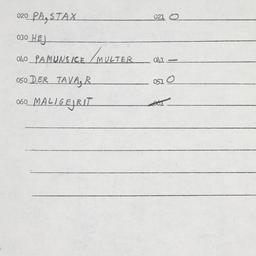 020 PA,STAX 021 O
030 HEJ
040 PAMUNSICE / MULTER 041 —
050 DER TAVA,R 051 O
060 MALIGEJRIT